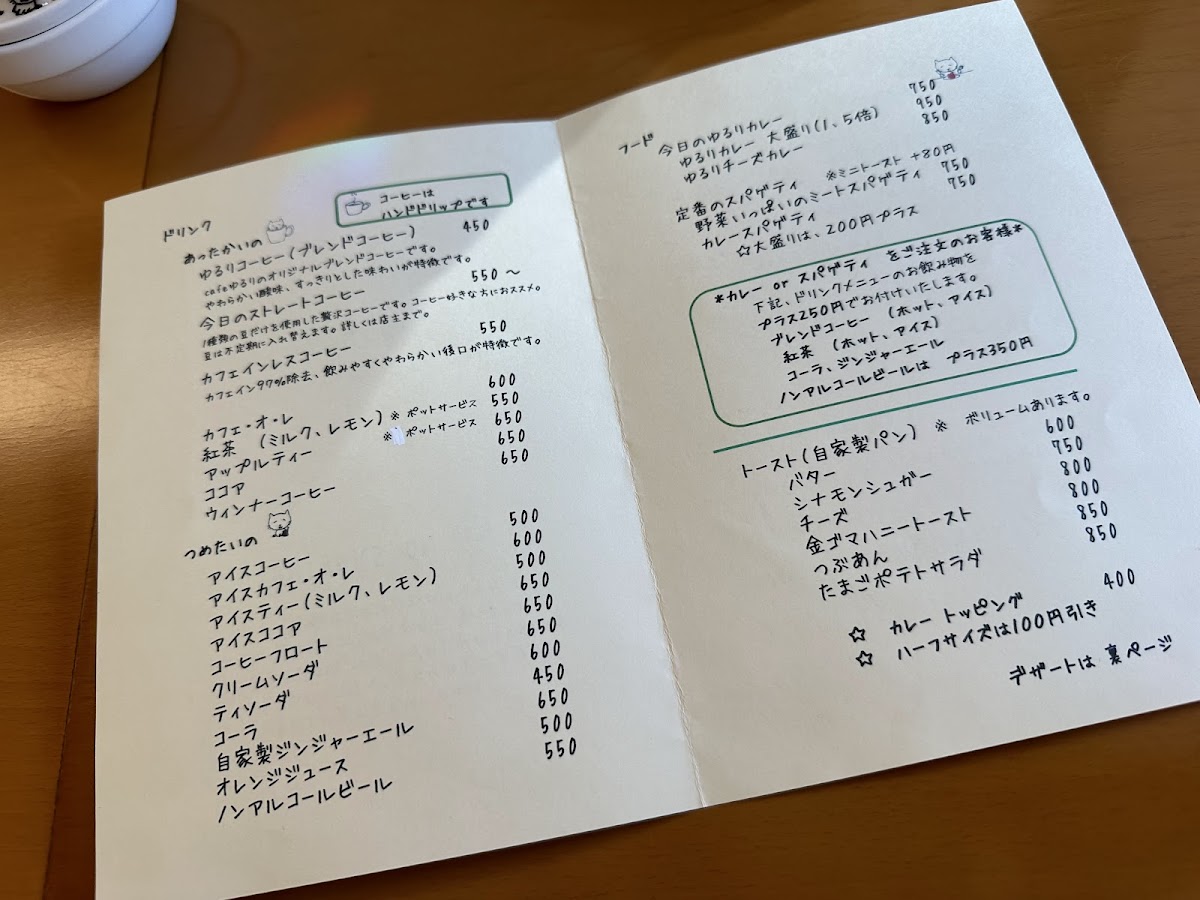 ドリンク
コーヒーは
ハンドドリップです
あったかいの
ゆるりコーヒー(ブレンドコーヒー) 450
cafeゆるりのオリジナルブレンドコーヒーです。
やわらかい酸味、すっきりとした味わいが特徴です。
今日のストレートコーヒー 550〜
1種類の豆だけを使用した贅沢コーヒーです。コーヒー好きな方におススメ。
豆は不定期に入れ替えます。詳しくは店主まで。
カフェインレスコーヒー 550
カフェイン97%除去、飲みやすくやわらかい後口が特徴です。
カフェ・オ・レ 600
紅茶 (ミルク、レモン) ※ ポットサービス 550
アップルティー ※ ポットサービス 650
ココア 650
ウィンナーコーヒー 650
つめたいの
アイスコーヒー 500
アイスカフェ・オ・レ 600
アイスティー(ミルク、レモン) 500
アイスココア 650
コーヒーフロート 650
クリームソーダ 650
ティソーダ 600
コーラ 450
自家製ジンジャーエール 650
オレンジジュース 500
ノンアルコールビール 550
フード
今日のゆるりカレー 750
ゆるりカレー 大盛り(1、5倍) 950
ゆるりチーズカレー 850
※ミニトースト +80円
定番のスパゲティ
野菜いっぱいのミートスパゲティ 750
カレースパゲティ 750
☆大盛りは、200円プラス
*カレー or スパゲティ をご注文のお客様*
下記、ドリンクメニューのお飲み物を
プラス250円でお付けいたします。
ブレンドコーヒー (ホット、アイス)
紅茶 (ホット、アイス)
コーラ、ジンジャーエール
ノンアルコールビールは プラス350円
トースト(自家製パン) ※ ボリュームあります。
バター 600
シナモンシュガー 750
チーズ 800
金ゴマハニートースト 800
つぶあん 850
たまごポテトサラダ 850
☆ カレー トッピング 400
☆ ハーフサイズは100円引き
デザートは 裏ページ